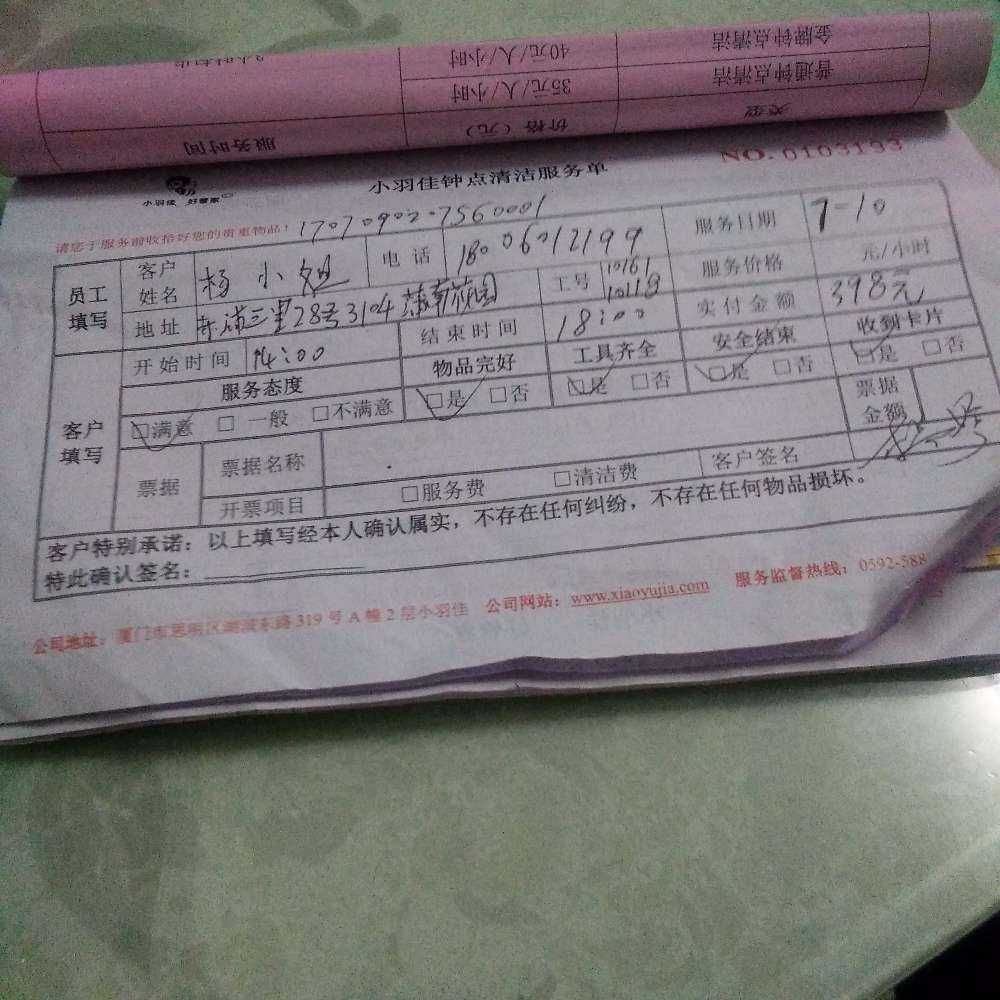 金牌钟点清洁 40元/人/小时
普通钟点清洁 35元/人/小时
类型 价格（元） 服务时间
NO. 0103193
小羽佳 好管家
小羽佳钟点清洁服务单
请您于服务前收拾好您的贵重物品！ 1707090207560001
员工填写 客户姓名 杨小姐 电话 18006012199 服务日期 7-10
地址 三里28号3104 工号 10161 10118 服务价格 元/小时
开始时间 14:00 结束时间 18:00 实付金额 398元
客户填写 服务态度 物品完好 工具齐全 安全结束 收到卡片
□满意 □一般 □不满意 □是 □否 □是 □否 □是 □否 □是 □否
票据 票据名称 票据金额
开票项目 □服务费 □清洁费 客户签名
客户特别承诺：以上填写经本人确认属实，不存在任何纠纷，不存在任何物品损坏。
特此确认签名：
公司地址：厦门市思明区湖滨东路319号A幢2层小羽佳 公司网站：www.xiaoyujia.com 服务监督热线：0592-588